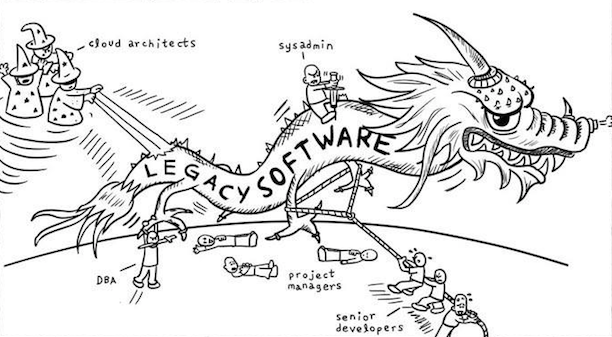 cloud architects
sysadmin
LEGACY SOFTWARE
DBA
project
managers
senior
developers